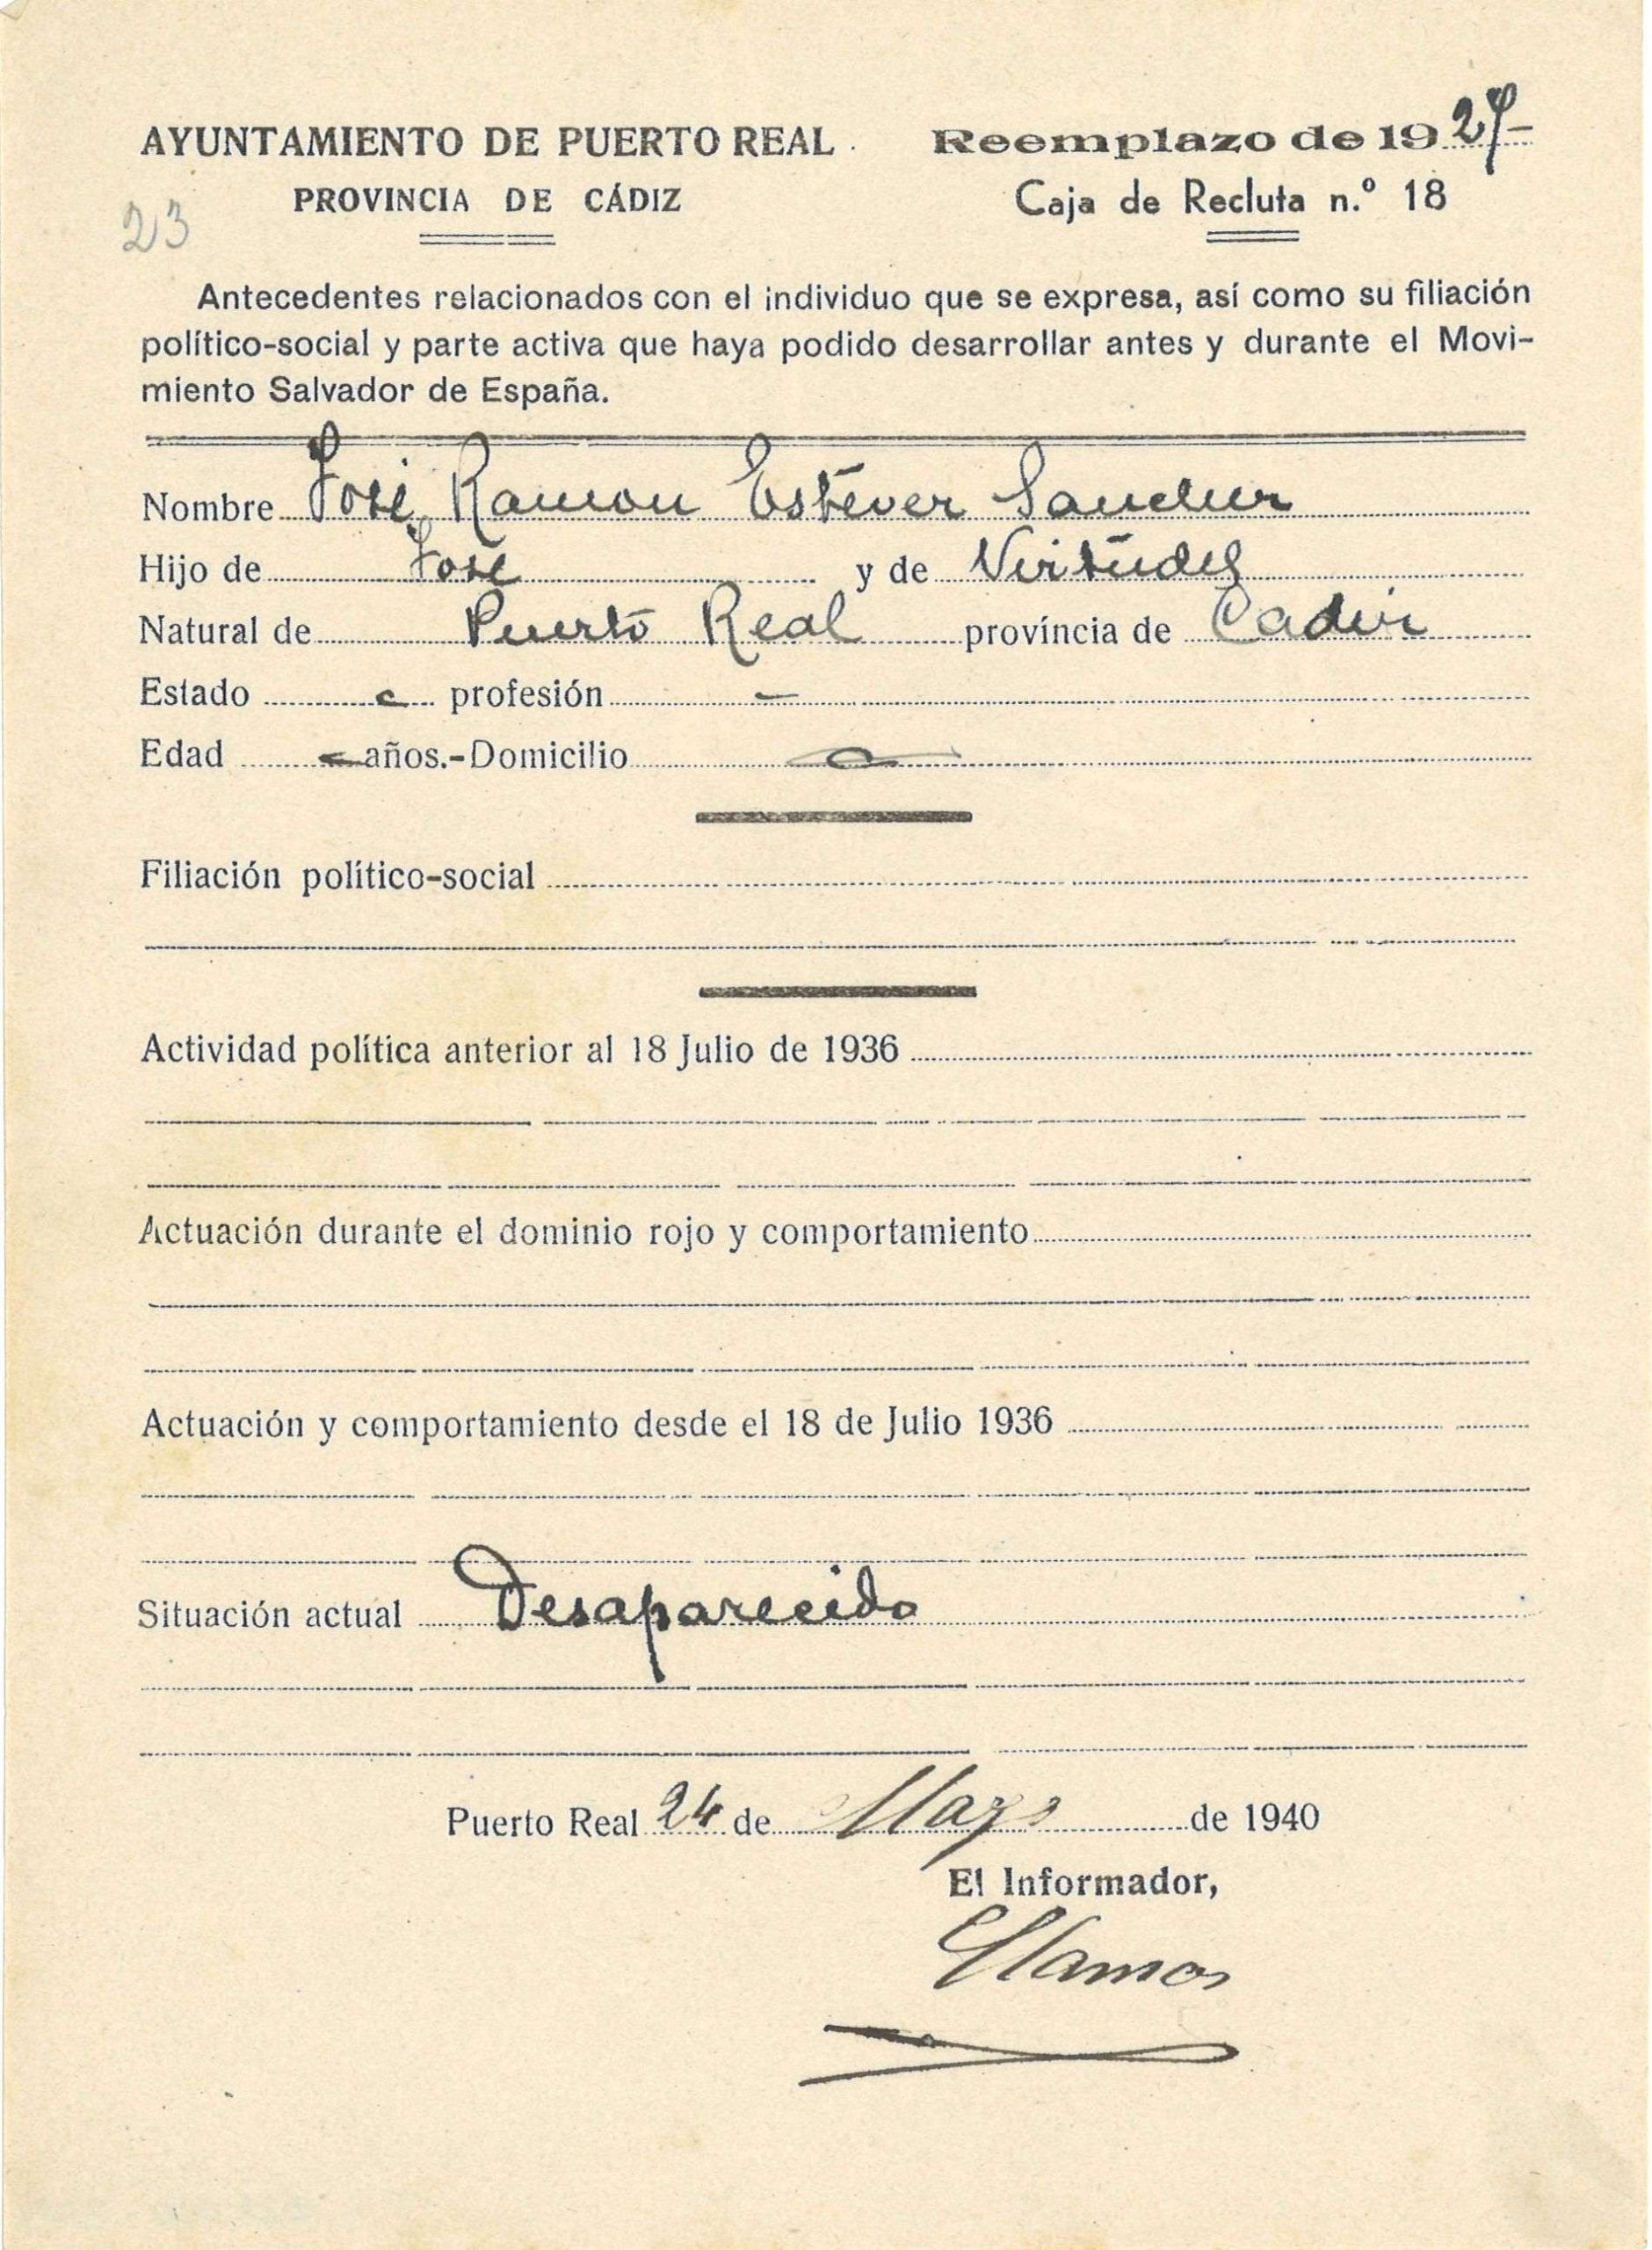 AYUNTAMIENTO DE PUERTO REAL
PROVINCIA DE CÁDIZ
Reemplazo de 1927-
Caja de Recluta n.º 18
23
Antecedentes relacionados con el individuo que se expresa, así como su filiación
político-social y parte activa que haya podido desarrollar antes y durante el Movi-
miento Salvador de España.
Nombre José Ramon Estevez Sanchez
Hijo de José y de Virtudes
Natural de Puerto Real provincia de Cadiz
Estado - profesión -
Edad - años.-Domicilio
Filiación político-social
Actividad política anterior al 18 Julio de 1936
Actuación durante el dominio rojo y comportamiento
Actuación y comportamiento desde el 18 de Julio 1936
Situación actual Desaparecido
Puerto Real 24 de de 1940
El Informador,